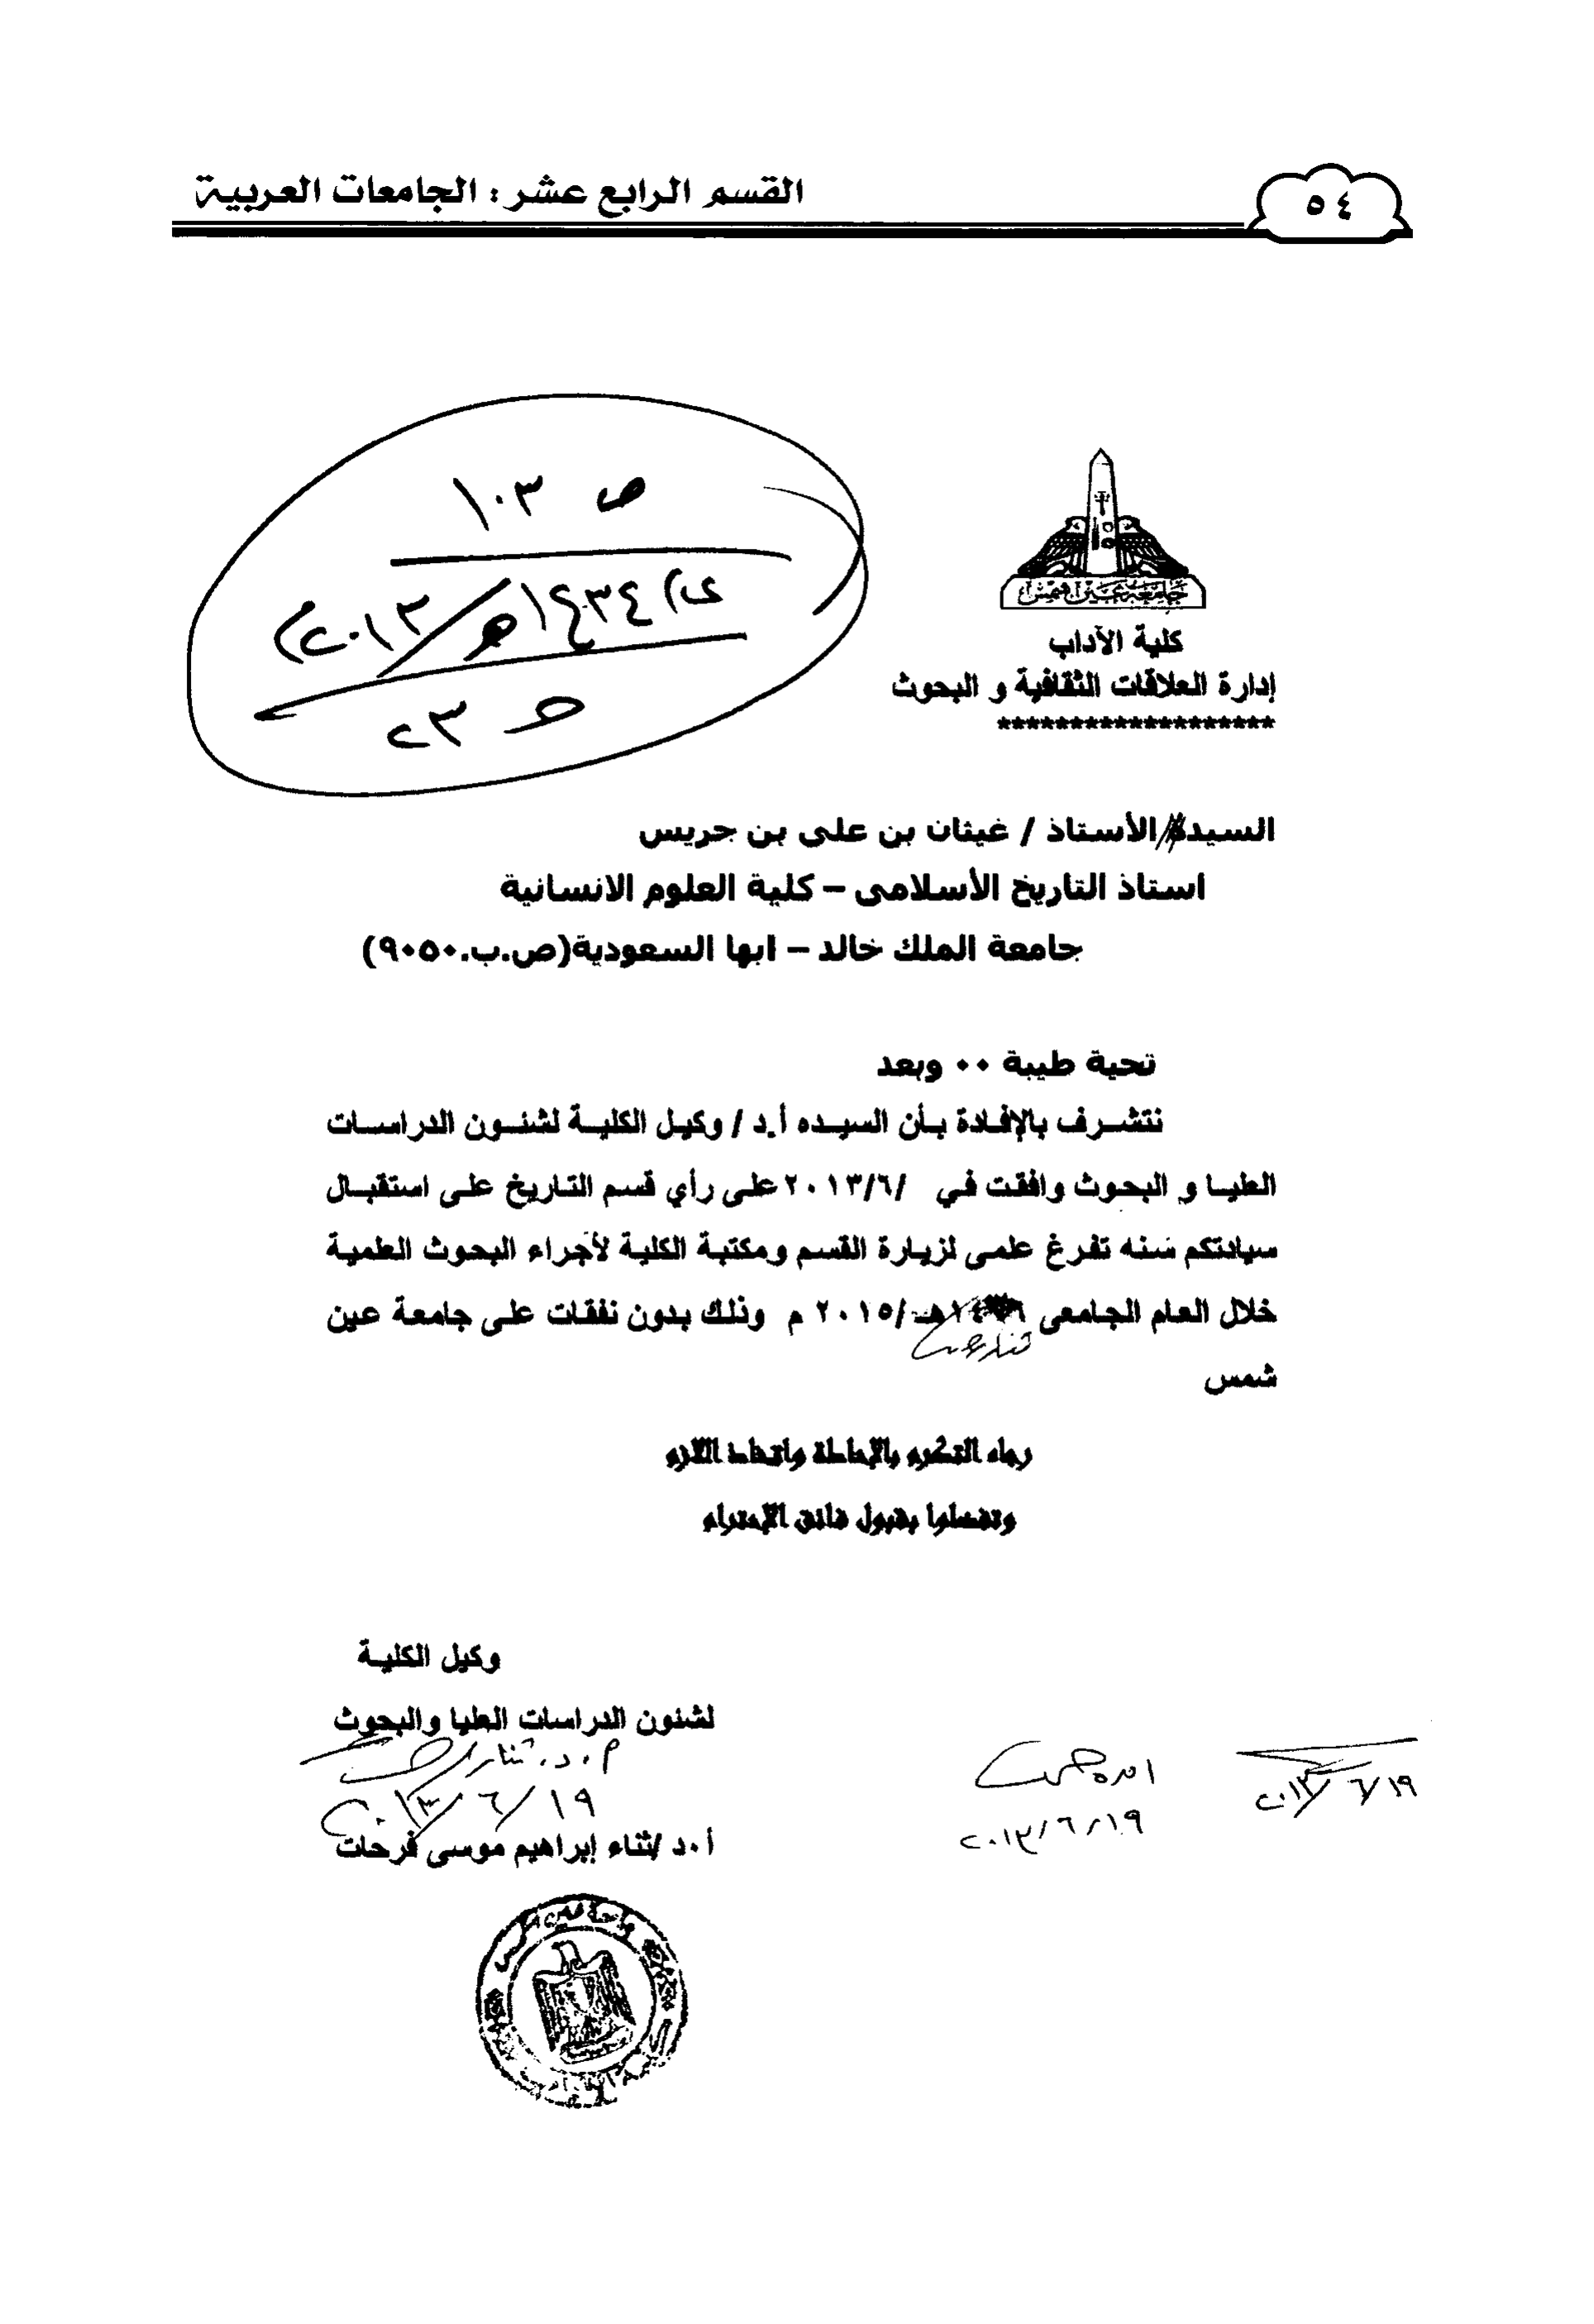 القسم الرابع عشر: الجامعات العربية
٥٤
ص ١٠٣
١٤٣٤هـ/٢٠١٣م
٢٣
جامعة عين شمس
كلية الآداب
إدارة العلاقات الثقافية و البحوث
*******************
السيد/الأستاذ / غيثان بن على بن جريس
استاذ التاريخ الأسلامى – كلية العلوم الانسانية
جامعة الملك خالد – ابها السعودية(ص.ب.٩٠٥٠)
تحية طيبة ٠٠ وبعد
نتشرف بالإفادة بأن السيده أ.د / وكيل الكلية لشئون الدراسات
العليا و البحوث وافقت في /٢٠١٣/٦ على رأي قسم التاريخ على استقبال
سيادتكم سنه تفرغ علمى لزيارة القسم ومكتبة الكلية لأجراء البحوث العلمية
خلال العام الجامعى ١٤٣٦هـ/٢٠١٥ م وذلك بدون نفقات على جامعة عين
شمس
رجاء التكرم بالإحاطة واتخاذ اللازم
وتفضلوا بقبول فائق الإحترام
وكيل الكلية
لشئون الدراسات العليا والبحوث
١٩/٦/٢٠١٣
٢٠١٣/٦/١٩
٢٠١٣/٦/١٩
أ٠د /ثناء إبراهيم موسى فرحات